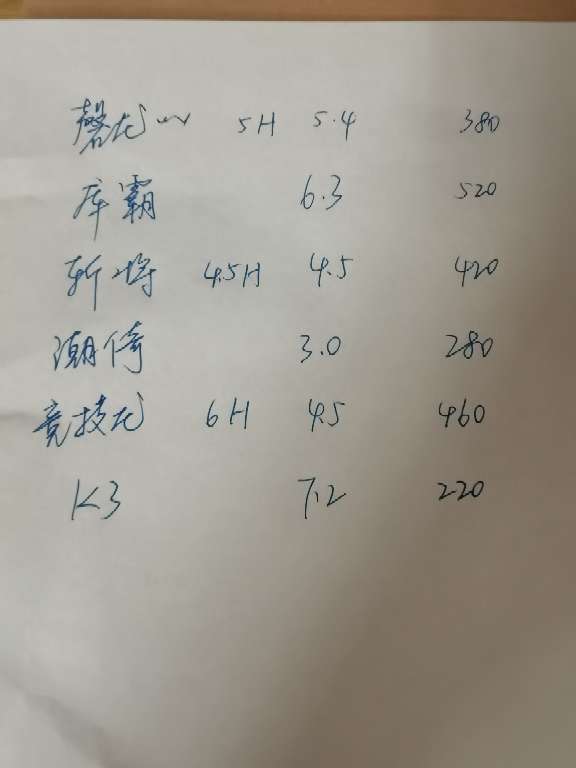 磬龙 5H 5.4 380
库霸 6.3 520
斩将 4.5H 4.5 420
潮倚 3.0 280
竞技龙 6H 4.5 460
K3 7.2 220